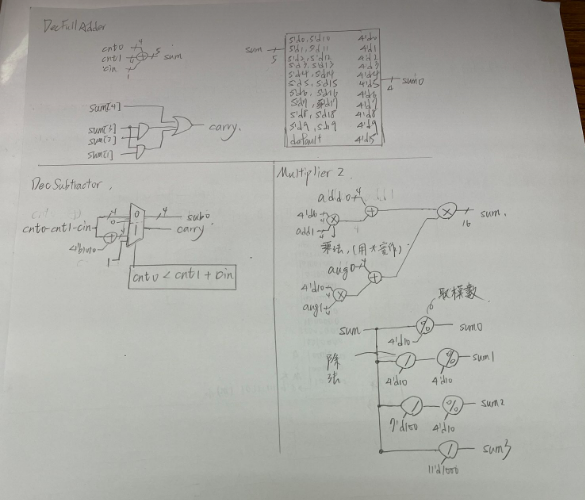 Dec Full Adder
cnt0 4
cnt1 5 sum
cin 1
sum[4]
sum[3]
sum[2]
sum[1]
carry.
sum 5
5'd0, 5'd10 4'd0
5'd1, 5'd11 4'd1
5'd2, 5'd12 4'd2
5'd3, 5'd13 4'd3
5'd4, 5'd14 4'd4
5'd5, 5'd15 4'd5
5'd6, 5'd16 4'd6
5'd8, 5'd18 4'd8
5'd9, 5'd19 4'd9
default 4'd5
4 sum0
Dec Subtractor.
cnt0-cnt1-cin
4
0
1
4 sub0
carry
4'b1010
1
cnt0 < cnt1 + cin
Multiplier 2
add0 4
4'd10
add1 4
乘法,
aug0 4
4'd10
aug1 4
sum.
16
取模數
sum
% sum0
4'd10
除法
/ % sum1
4'd10 4'd10
/ % sum2
7'd100 4'd10
/ sum3
11'd1000